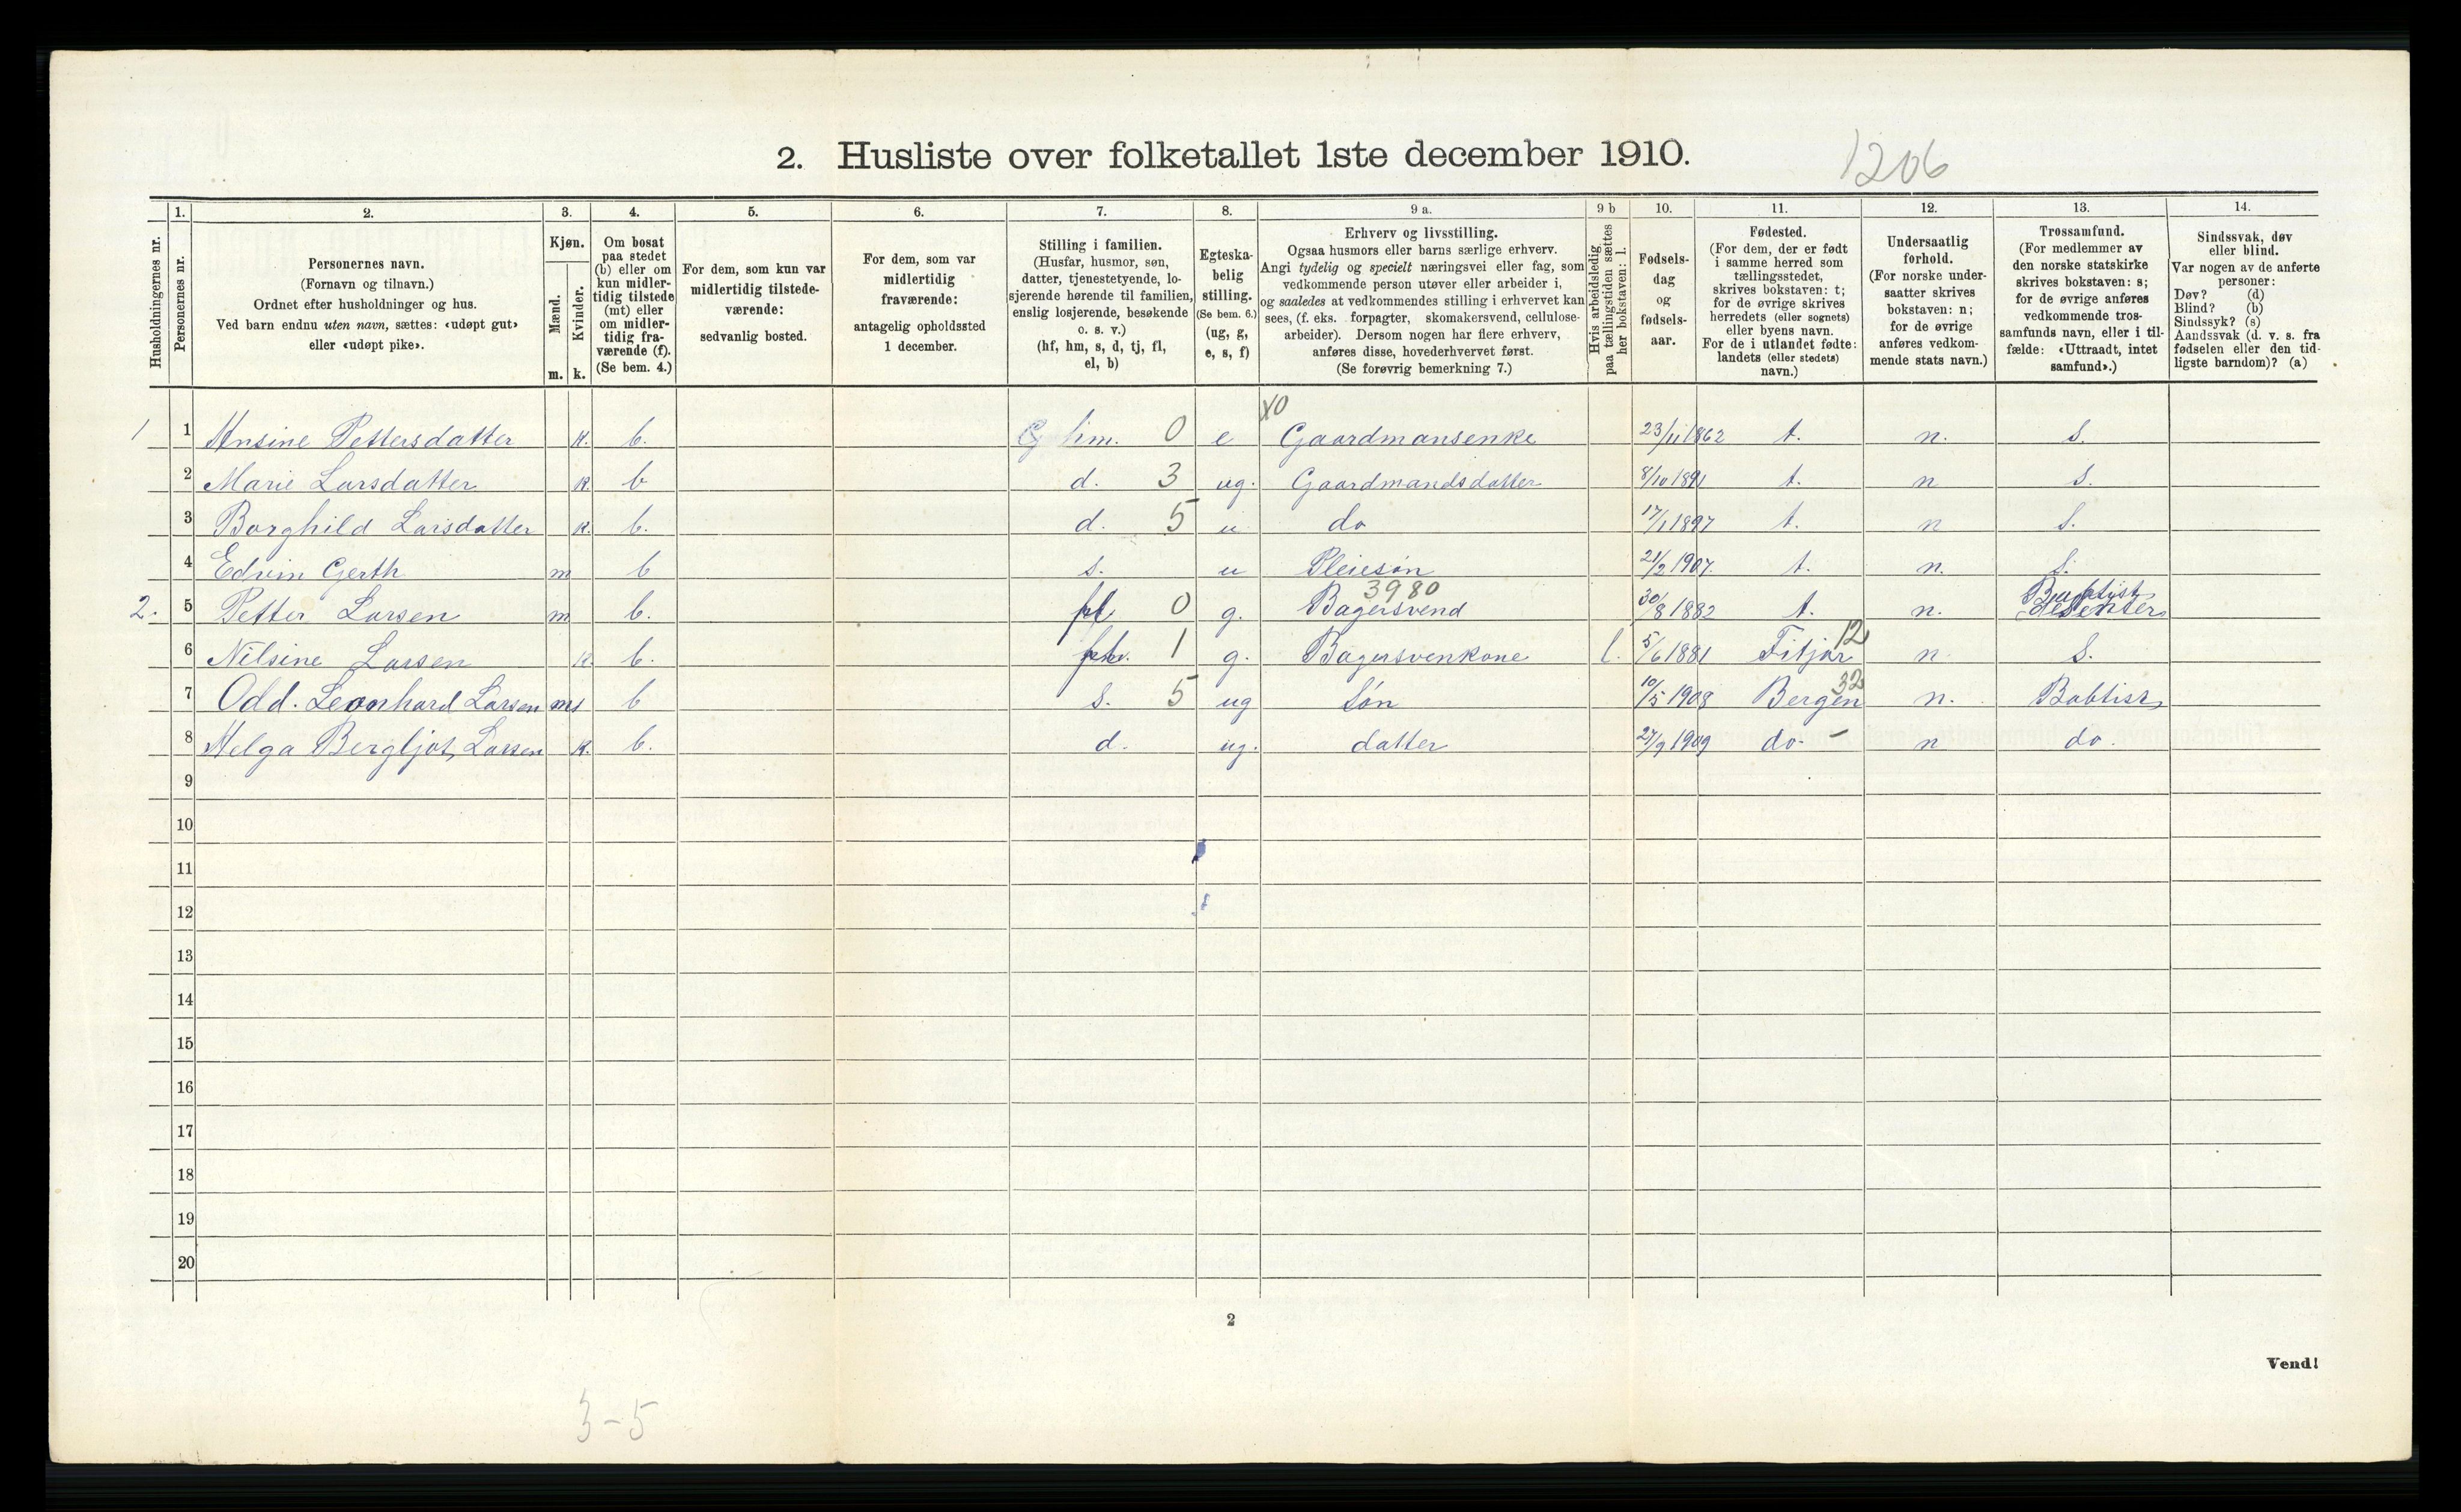 2. Husliste over folketallet 1ste december 1910.
1206
Husholdningernes nr.
1.
Personernes nr.
2.
Personernes navn.
(Fornavn og tilnavn.)
Ordnet efter husholdninger og hus.
Ved barn endnu uten navn, sættes: «udøpt gut»
eller «udøpt pike».
3.
Kjøn.
Mænd.
Kvinder.
m. k.
4.
Om bosat
paa stedet
(b) eller om
kun midler-
tidig tilstede
(mt) eller
om midler-
tidig fra-
værende (f).
(Se bem. 4.)
5.
For dem, som kun var
midlertidig tilstede-
værende:
sedvanlig bosted.
6.
For dem, som var
midlertidig
fraværende:
antagelig opholdssted
1 december.
7.
Stilling i familien.
(Husfar, husmor, søn,
datter, tjenestetyende, lo-
sjerende hørende til familien,
enslig losjerende, besøkende
o. s. v.)
(hf, hm, s, d, tj, fl,
el, b)
8.
Egteska-
belig
stilling.
(Se bem. 6.)
(ug, g,
e, s, f)
9 a.
Erhverv og livsstilling.
Ogsaa husmors eller barns særlige erhverv.
Angi tydelig og specielt næringsvei eller fag, som
vedkommende person utøver eller arbeider i,
og saaledes at vedkommendes stilling i erhvervet kan
sees, (f. eks. forpagter, skomakersvend, cellulose-
arbeider). Dersom nogen har flere erhverv,
anføres disse, hovederhvervet først.
(Se forøvrig bemerkning 7.)
9 b
Hvis arbeidsledig
paa tællingstiden sættes
her bokstaven: l.
10.
Fødsels-
dag
og
fødsels-
aar.
11.
Fødested.
(For dem, der er født
i samme herred som
tællingsstedet,
skrives bokstaven: t;
for de øvrige skrives
herredets (eller sognets)
eller byens navn.
For de i utlandet fødte:
landets (eller stedets)
navn.)
12.
Undersaatlig
forhold.
(For norske under-
saatter skrives
bokstaven: n;
for de øvrige
anføres vedkom-
mende stats navn.)
13.
Trossamfund.
(For medlemmer av
den norske statskirke
skrives bokstaven: s;
for de øvrige anføres
vedkommende tros-
samfunds navn, eller i til-
fælde: «Uttraadt, intet
samfund».)
14.
Sindssvak, døv
eller blind.
Var nogen av de anførte
personer:
Døv? (d)
Blind? (b)
Sindssyk? (s)
Aandssvak (d. v. s. fra
fødselen eller den tid-
ligste barndom)? (a)
1 1 Ansine Pettersdatter k. b. hm. 0 e Gaardmansenke 23/11 1862 t. n. s.
2 Marie Larsdatter k. b d. 3 ug. Gaardmandsdatter 8/10 1891 t. n s.
3 Borghild Larsdatter k. b. d. 5 u do 17/1 1897 t. n s.
4 Edvin Gerth m b s. u Pleiesøn 21/2 1907. t. n. s.
3980
2. 5 Petter Larsen m b. fl 0 g. Bagersvend 30/8 1882 t. n. Baptist Desenter
6 Nilsine Larsen k. b. 1 g. Bagersvenkone l. 5/6 1881 Fitjar 12 n s.
7 Odd. Leonhard Larsen m b s. 5 ug søn 10/5 1908 Bergen 32 n. Babtist
8 Helga Bergljot Larsen k. b. d. ug. datter 27/9 1909 do - n do.
9
10
11
12
13
14
15
16
17
18
19
20
2
Vend!
3-5